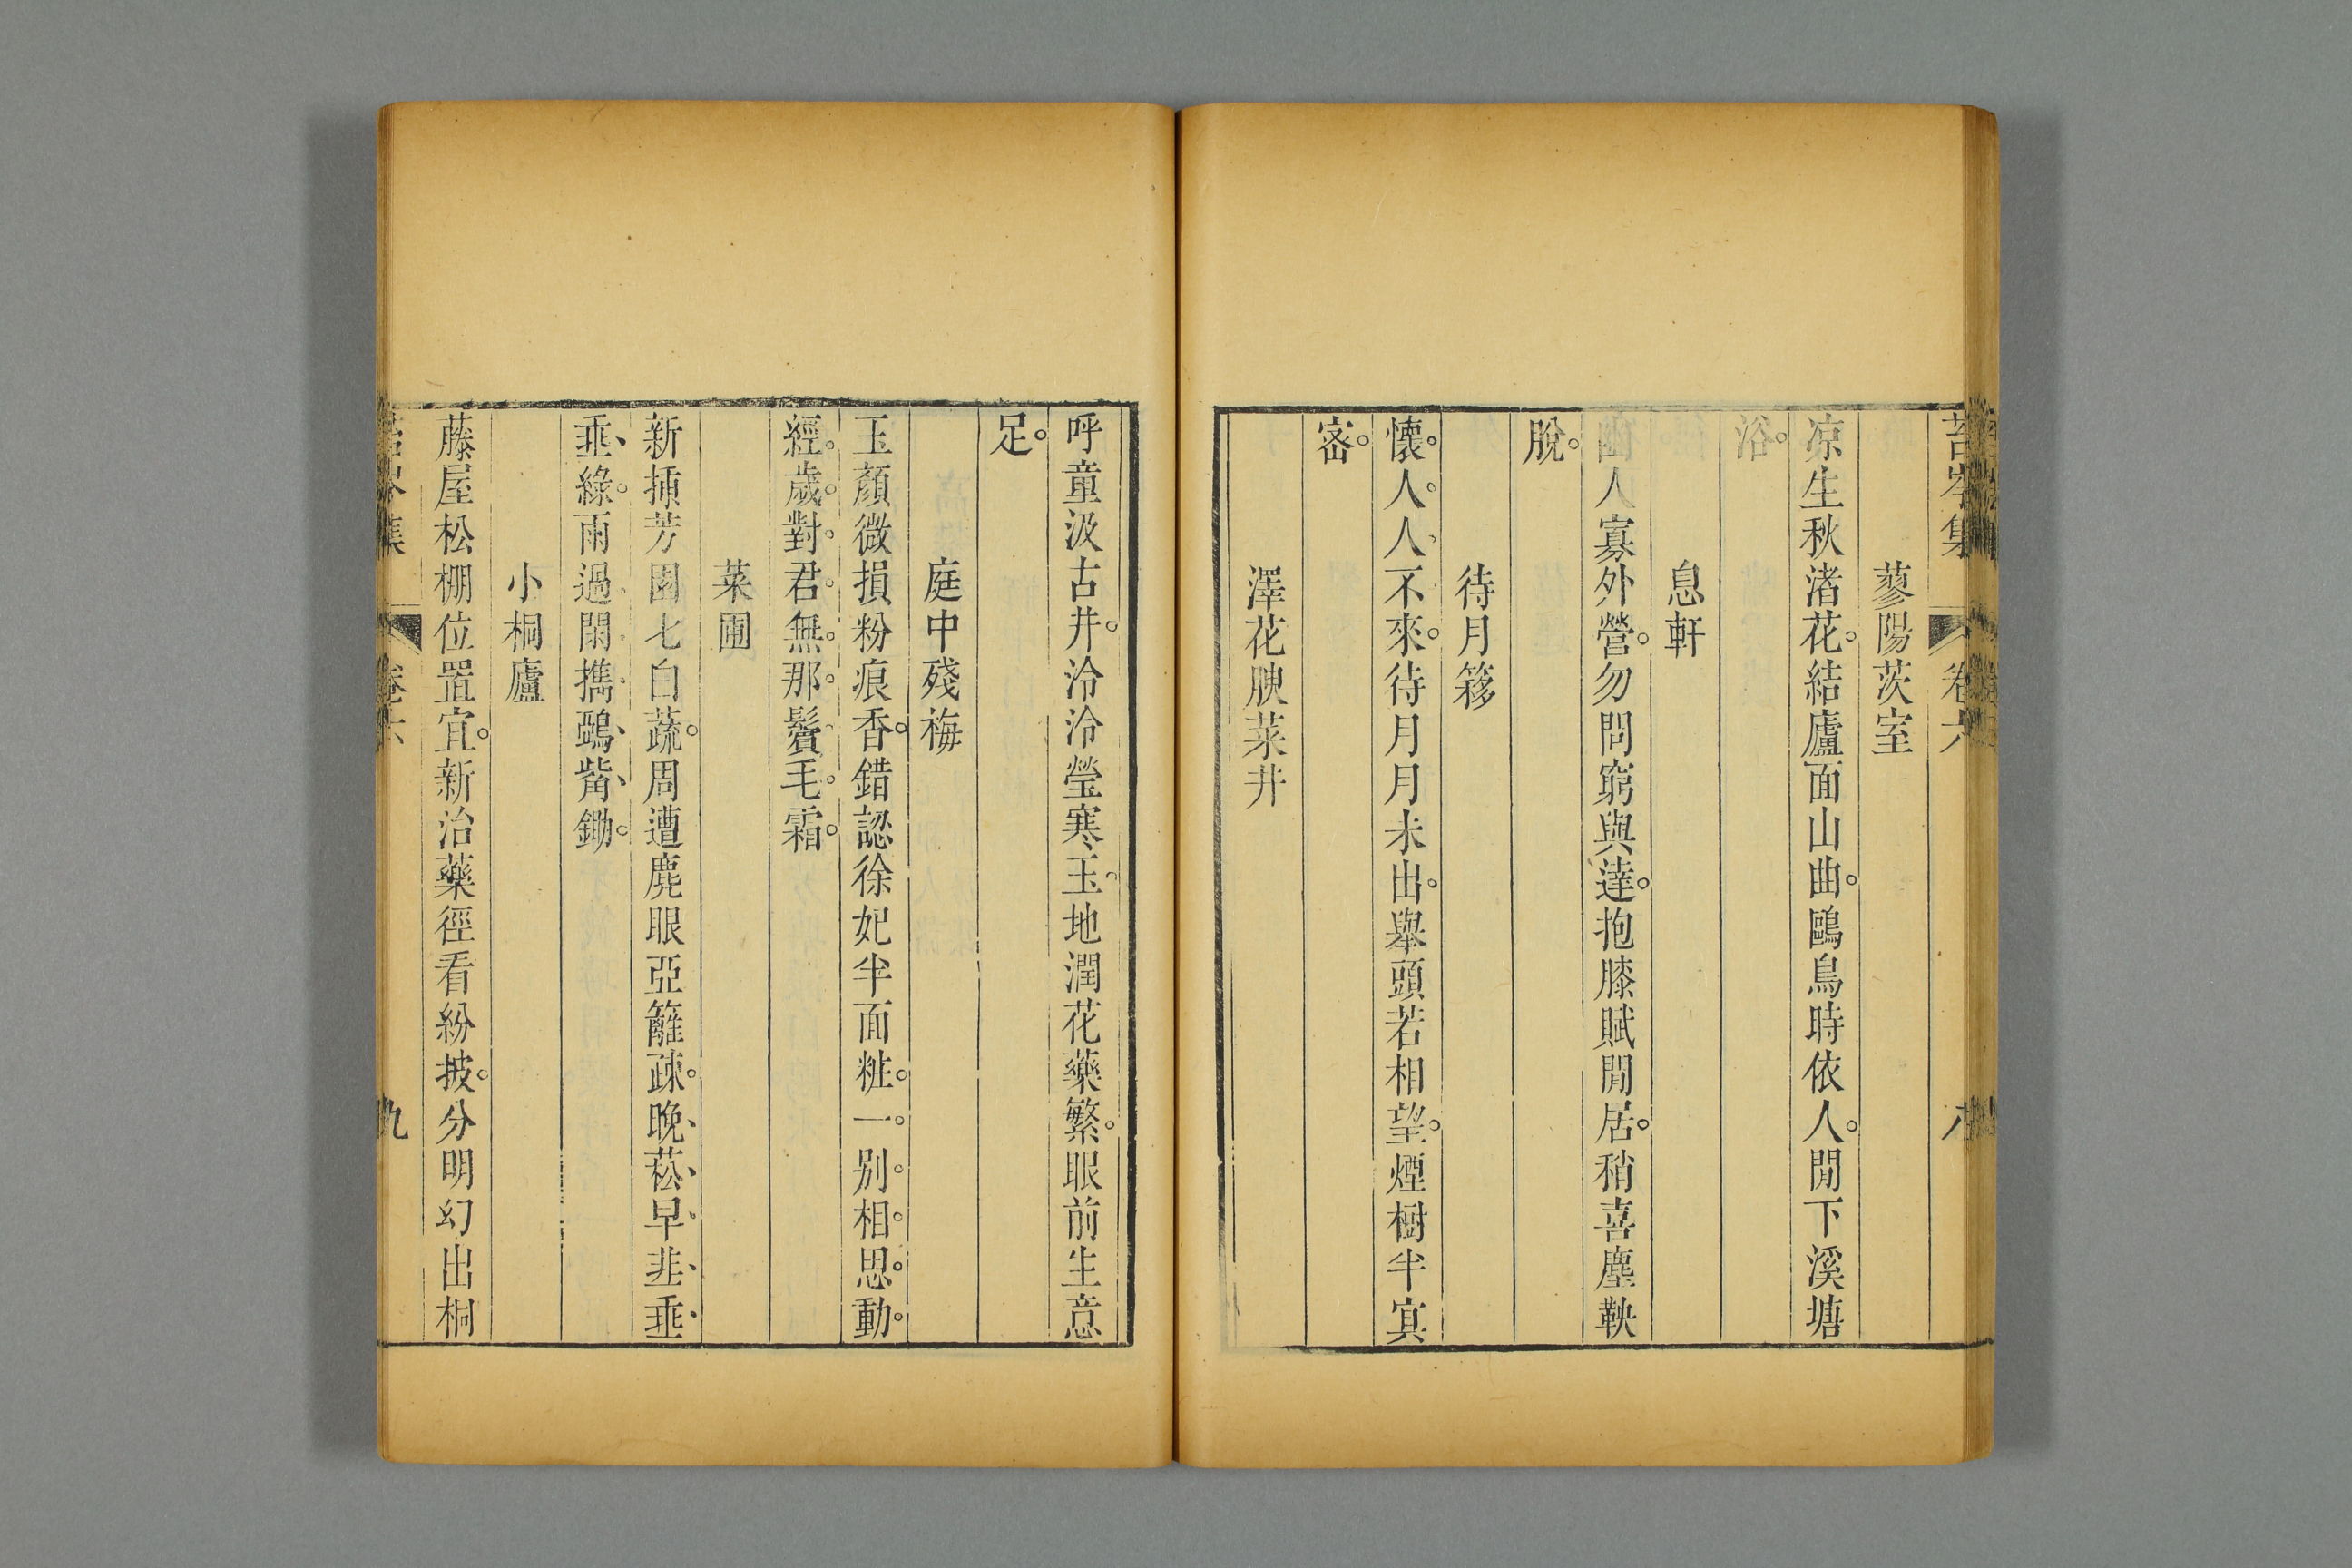 苔岑集
卷六
八
蓼陽茨室
凉生秋渚花。結廬面山曲。鷗鳥時依人。閒下溪塘
浴。
息軒
幽人寡外營。勿問窮與達。抱膝賦閒居。稍喜塵鞅
脫。
待月簃
懷人人不來。待月月未出。舉頭若相望。煙樹半寘
宻。
澤花腴菜井
呼童汲古井。泠泠瑩寒玉。地潤花藥繁。眼前生意
足。
庭中殘梅
玉顏微損粉痕香。錯認徐妃半面粧。一別相思動
經歲。對君無那鬢毛霜。
菜圃
新揷芳園七白蔬。周遭麂眼亞籬疎。晚菘早韭垂
垂綠。雨過閑攜鵶觜鋤。
小桐廬
藤屋松棚位置宜。新治藥徑看紛披。分明幻出桐
苔岑集
卷六
九